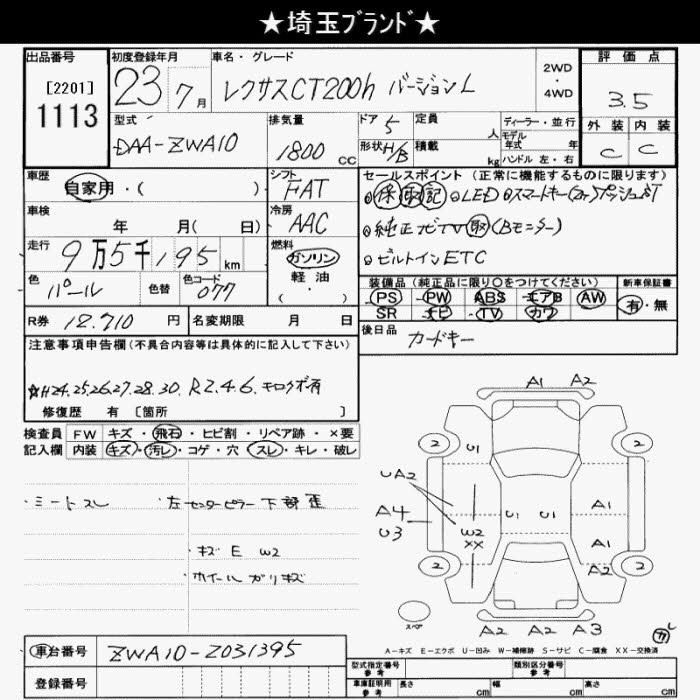 ★埼玉ブランド★
出品番号
[2201]
1113
初度登録年月
23年 7月
車名・グレード
レクサスCT200h バージョンL
2WD
・
4WD
評価点
3.5
外装 内装
C C
型式
DAA-ZWA10
排気量
1800 CC
ドア 5
形状 H/B
定員 人
積載 kg
ディーラー・並行
モデル年式 年
ハンドル 左・右
車歴
自家用・( )
シフト
FAT
車検
年 月( 日)
冷房
AAC
走行
9万5千195km
燃料
ガソリン
軽油
( ・ )
色
パール
色替
色コード
077
R券 12.710 円
名変期限 月 日
セールスポイント (正常に機能するものに限ります)
◎保取記 ◎LED ◎スマートキー(2ケ)プッシュST
◎純正ナビTV取(Bモニター)
◎ビルトインETC
装備品(純正品に限り○をつけてください)
PS PW ABS エアB AW
SR ナビ TV カワ
新車保証書
有・無
後日品
カードキー
注意事項申告欄(不具合内容等は具体的に記入して下さい)
☆H24.25.26.27.28.30. R2.4.6.キロクボ有
修復歴 有 [箇所 ]
検査員記入欄
FW キズ・飛石・ヒビ割・リペア跡・×要
内装 キズ・汚レ・コゲ・穴・スレ・キレ・破レ
・シートスレ ・左センターピラー下部歪
・キズ E W2
・ホイールガリキズ
A1 A2
2 2
U1
UA2
A4
U3
W2
XX
U1 U1
A1
A1
A2
2 2
スペア
A2 A2 A3
ガレ
A-キズ E-エクボ U-凹み W-補修跡 S-サビ C-腐食 XX-交換済
車台番号 ZWA10-2031395
登録番号
型式指定番号
参考
類別区分番号
参考
車庫証明用
参考
長さ cm 幅 cm 高さ cm